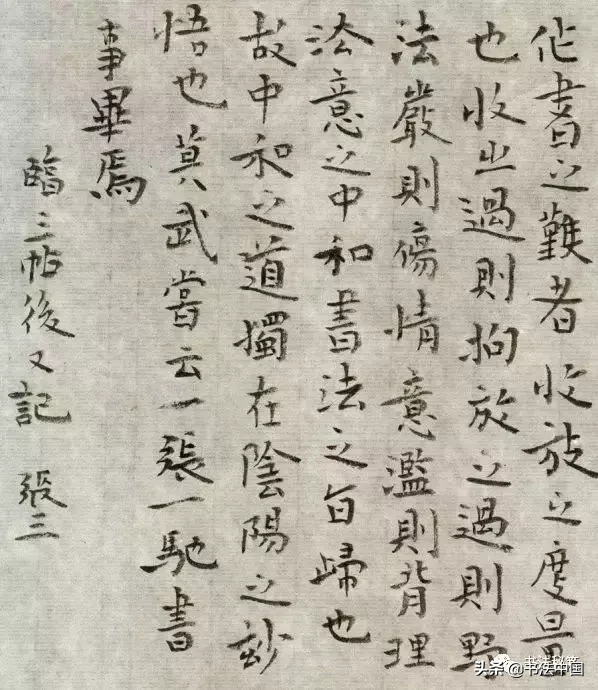 作書之難者收放之度量
也收之過則拘放之過則野
法嚴則傷情意濫則背理
法意之中和書法之旨歸也
故中和之道獨在陰陽之妙
悟也莫武嘗云一張一馳書
事畢焉
臨三帖後又記 張三
头条 @书法中国